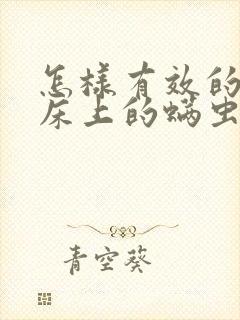 怎样有效的
床上的螨虫
青空葵